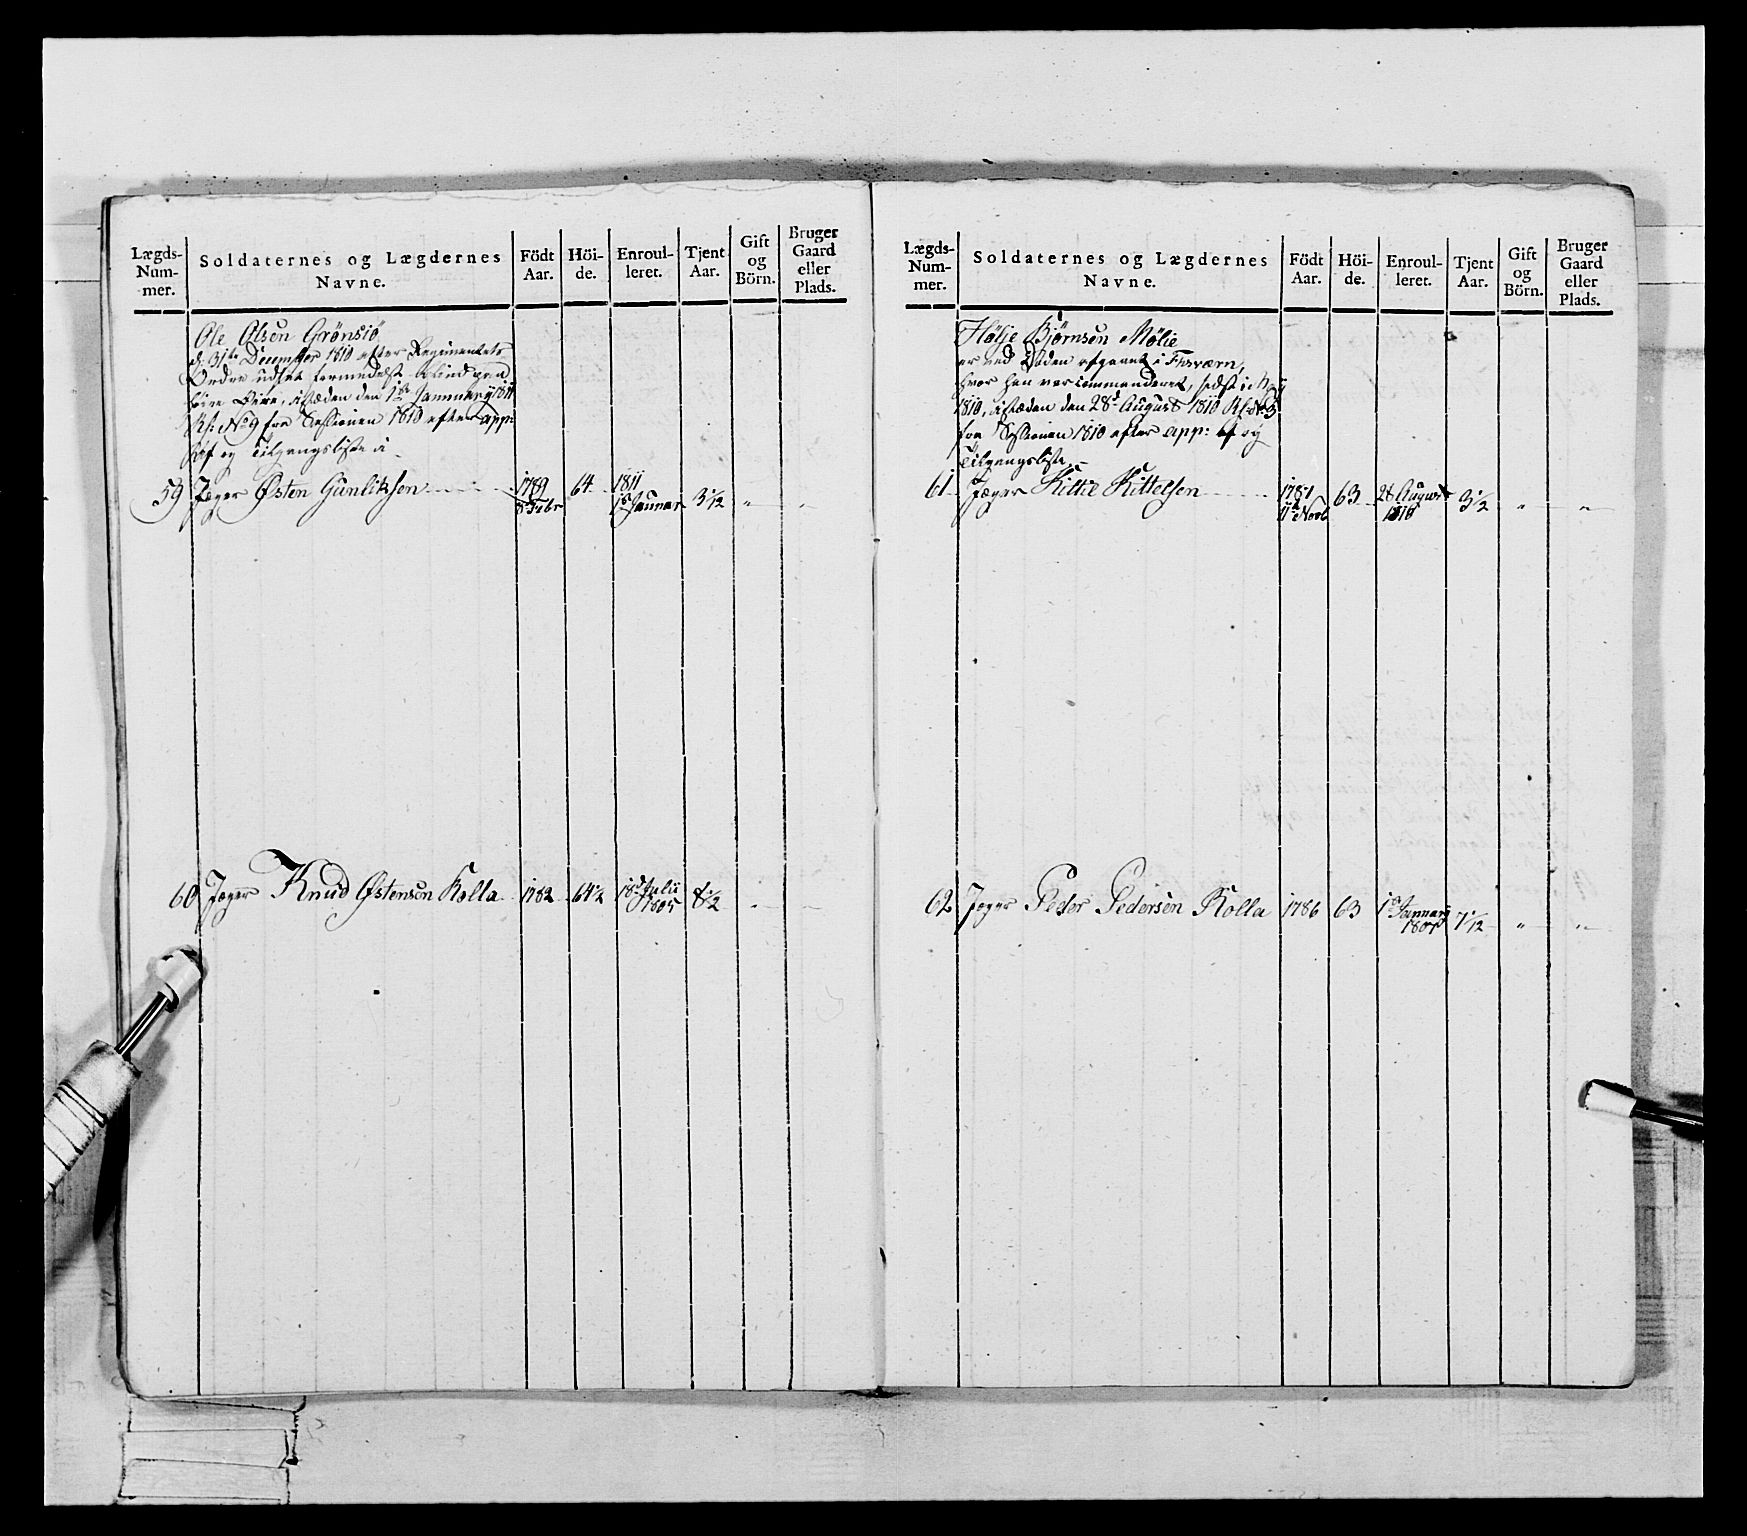 Lægds-Num-mer. Soldaternes og Lægdernes Navne. Födt Aar. Höi-de. Enroul-leret. Tjent Aar. Gift og Börn. Bruger Gaard eller Plads.
Ole Olsen Grönsiø
d: 31te December 1810 efter Regimentets
Ordre udsat formedelst blind paa
höire Øie, istæden den 1ste Januarÿ 1811
Rl: No 9 fra Sessionen 1810 efter app:
Af og Tilgangsliste
59 Jæger Østen Gunliksen 1789 64 1811 3 1/2 " "
8 Febr 1s Januar
60 Jæger Knud Østensen Kolla 1782 64 1/2 18d Julii 1805 8 1/2 " "
Lægds-Num-mer. Soldaternes og Lægdernes Navne. Födt Aar. Höi-de. Enroul-leret. Tjent Aar. Gift og Börn. Bruger Gaard eller Plads.
Hølje Bjørnsen Mølie
er ved Döden afgaaet i
hvor han var commanderet, sidst i
1810, istæden den 28d August 1810 Rl: No 3
fra Sessionen 1810 efter app: Af og
Tilgangsliste
61 Jæger Kittil Kittelsen 1787 63 28 August 3 1/2 " "
11te Novb 1810
62 Jæger Peder Pedersen Kolla 1786 63 1s Januarÿ 1807 7 1/2 " "